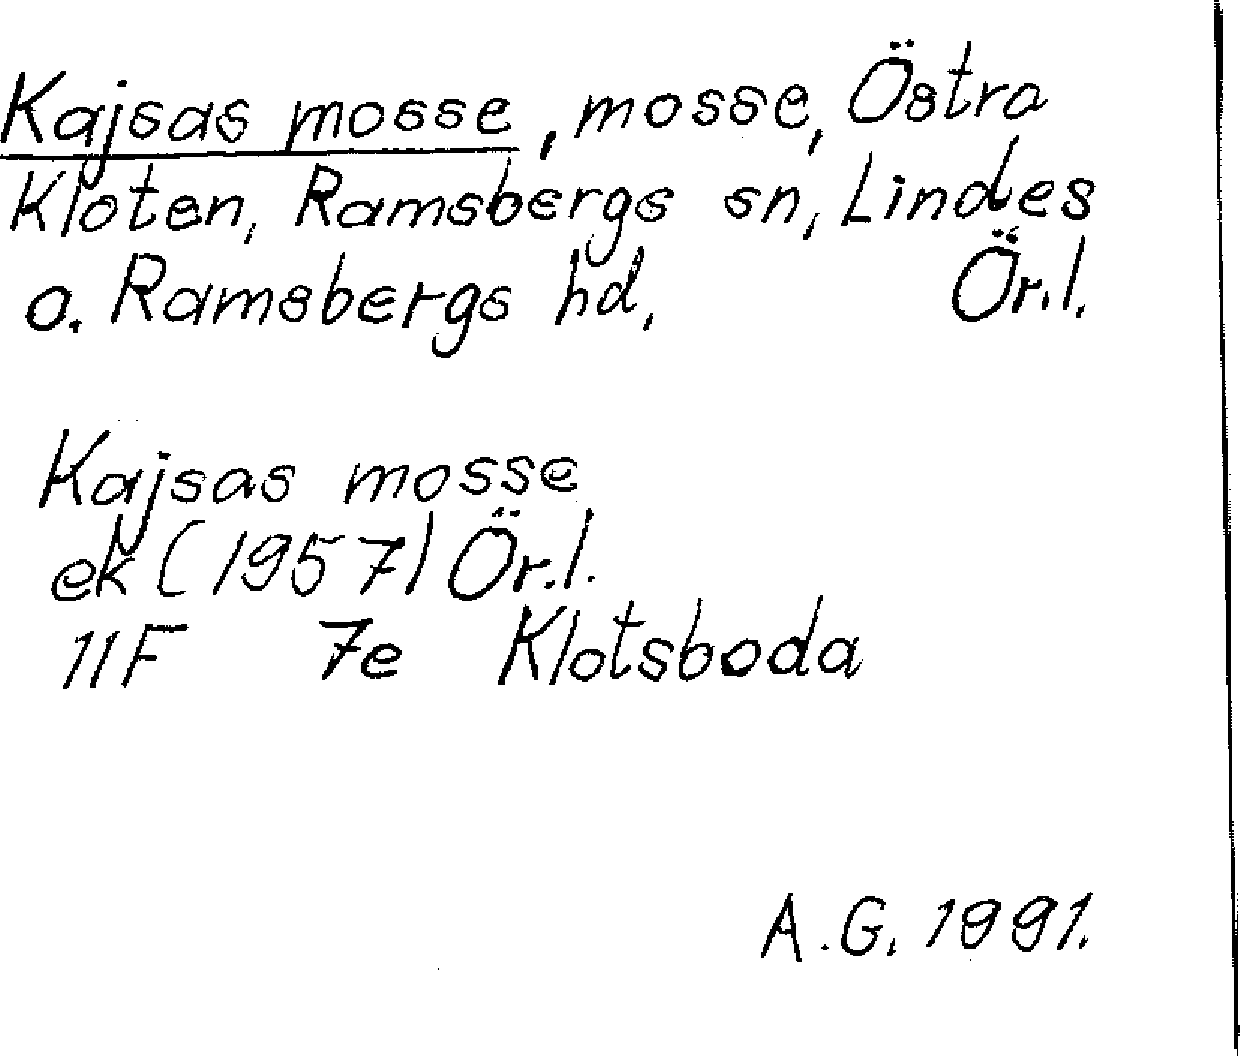 Kajsas mosse, mosse, Östra
Kloten, Ramsbergs sn, Lindes
o. Ramsbergs hd, Ör.l.
Kajsas mosse
ek (1957) Ör.l.
11F 7e Klotsboda
A.G. 1991.